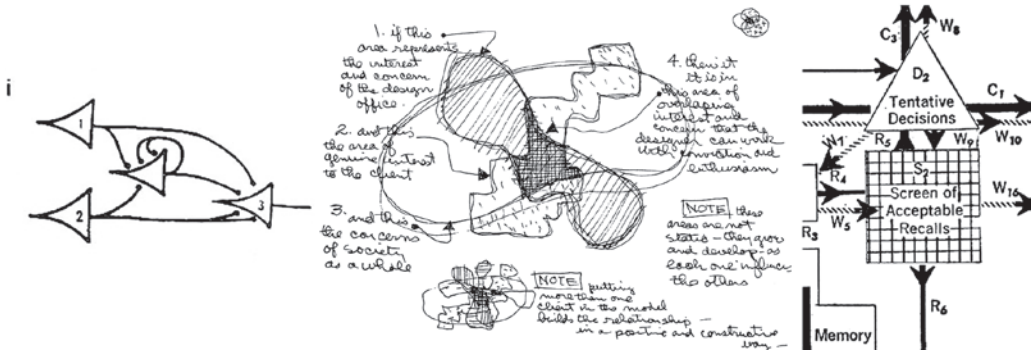 i
1
2
3
1. if this
area represents
the interest
and concern
of the design
office.
2. and this
the area of
genuine interest
to the client
3. and this
the concerns
of society
as a whole
4. then it
it is in
this area of
overlaping
interest and
concern that the
designer can work
with conviction and
enthusiasm
NOTE these
areas are not
static - they grow
and develop - as
each one influences
the others
NOTE putting
more than one
client in the model
builds the relationship -
in a positive and constructive
way -
C3
W8
D2
Tentative
Decisions
C1
W10
W1
R5
W9
R4
S2
Screen of
Acceptable
Recalls
W16
W5
R3
R6
Memory